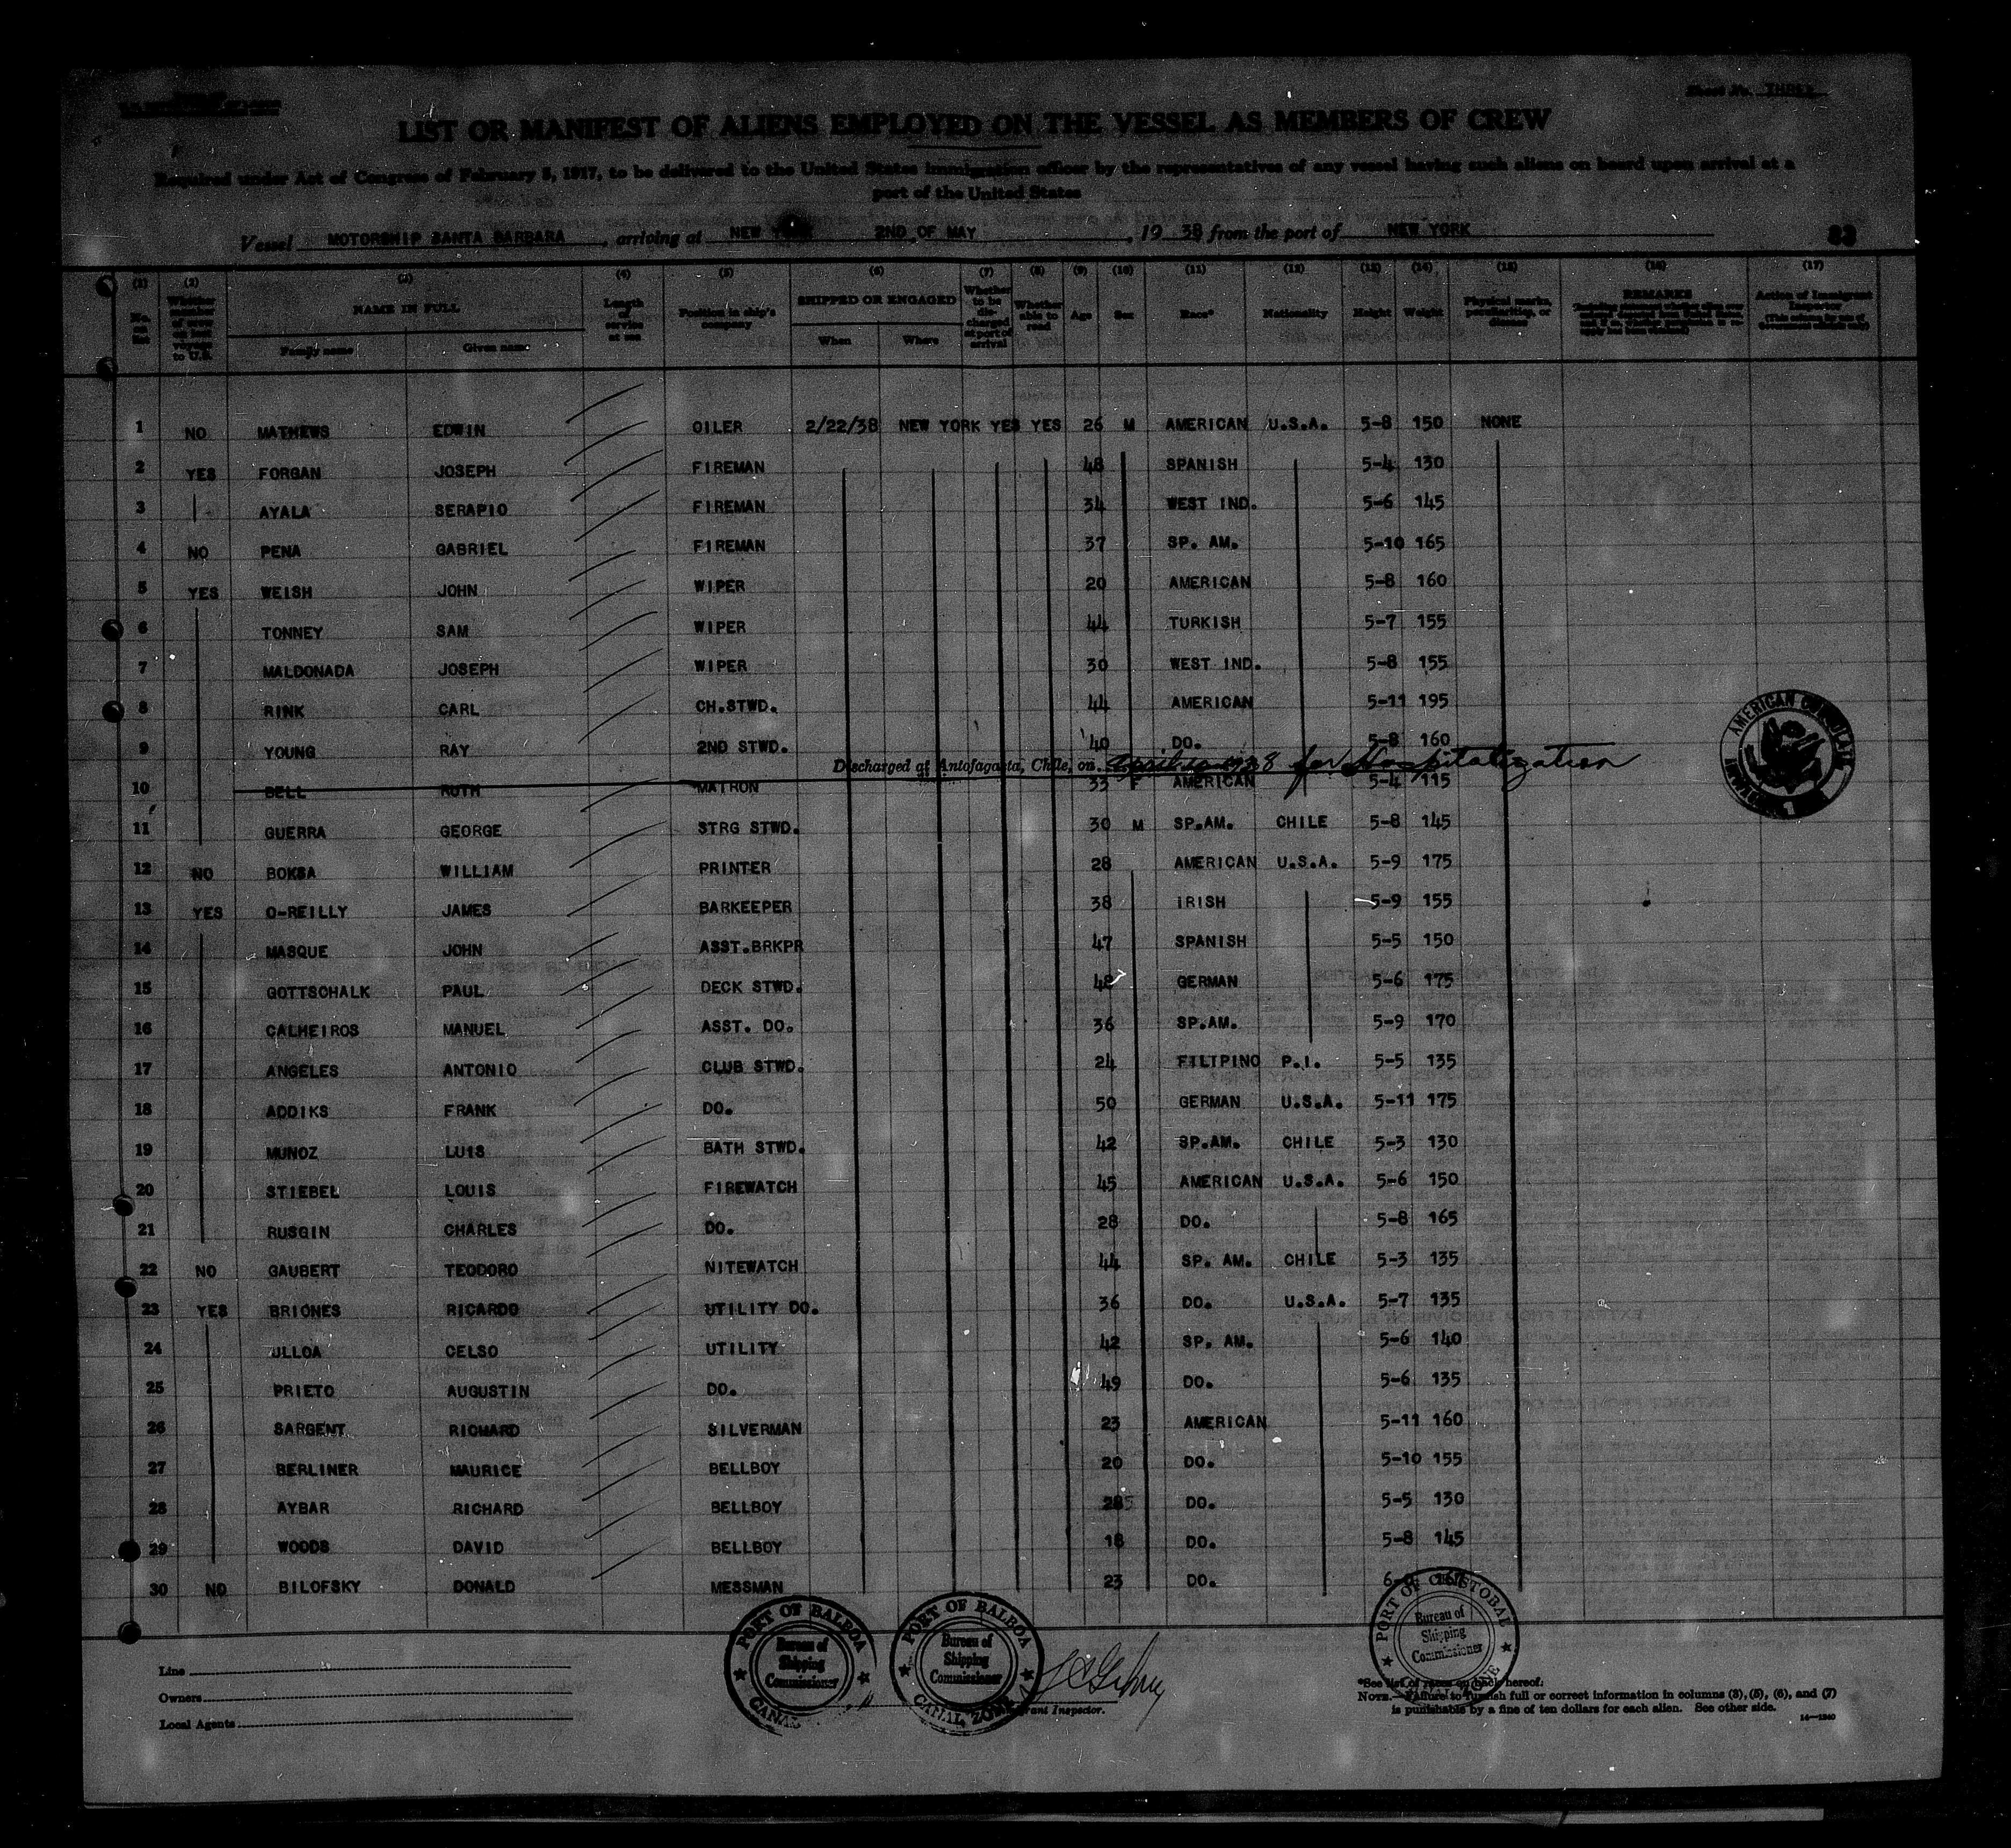 Sheet No. THREE
LIST OR MANIFEST OF ALIENS EMPLOYED ON THE VESSEL AS MEMBERS OF CREW
Required under Act of Congress of February 5, 1917, to be delivered to the United States immigration officer by the representatives of any vessel having such aliens on board upon arrival at a
port of the United States
Vessel MOTORSHIP SANTA BARBARA, arriving at NEW YORK 2ND OF MAY, 1938 from the port of NEW YORK
(1) (2) (3) (4) (5) (6) (7) (8) (9) (10) (11) (12) (13) (14) (15) (16) (17)
No. on list
NAME IN FULL
Family name Given name
Length of service at sea
Position in ship's company
SHIPPED OR ENGAGED
When Where
Whether to be discharged at port of arrival
Whether able to read
Age Sex Race* Nationality Height Weight
Physical marks, peculiarities, or disease
REMARKS
Action of Immigrant Inspector
1 NO MATHEWS EDWIN OILER 2/22/38 NEW YORK YES YES 26 M AMERICAN U.S.A. 5-8 150 NONE
2 YES FORGAN JOSEPH FIREMAN 48 SPANISH 5-4 130
3 AYALA SERAPIO FIREMAN 34 WEST IND. 5-6 145
4 NO PENA GABRIEL FIREMAN 37 SP. AM. 5-10 165
5 YES WEISH JOHN WIPER 20 AMERICAN 5-8 160
6 TONNEY SAM WIPER 44 TURKISH 5-7 155
7 MALDONADA JOSEPH WIPER 30 WEST IND. 5-8 155
8 RINK CARL CH.STWD. 44 AMERICAN 5-11 195
9 YOUNG RAY 2ND STWD. 40 DO. 5-8 160
Discharged at Antofagasta, Chile, on April 1938 for Hospitalization
10 BELL RUTH MATRON 33 F AMERICAN 5-4 115
11 GUERRA GEORGE STRG STWD. 30 M SP.AM. CHILE 5-8 145
12 NO BOKSA WILLIAM PRINTER 28 AMERICAN U.S.A. 5-9 175
13 YES O-REILLY JAMES BARKEEPER 38 IRISH 5-9 155
14 MASQUE JOHN ASST.BRKPR 47 SPANISH 5-5 150
15 GOTTSCHALK PAUL DECK STWD. 48 GERMAN 5-6 175
16 CALHEIROS MANUEL ASST. DO. 36 SP.AM. 5-9 170
17 ANGELES ANTONIO CLUB STWD. 24 FILIPINO P.I. 5-5 135
18 ADDIKS FRANK DO. 50 GERMAN U.S.A. 5-11 175
19 MUNOZ LUIS BATH STWD. 42 SP.AM. CHILE 5-3 130
20 STIEBEL LOUIS FIREWATCH 45 AMERICAN U.S.A. 5-6 150
21 RUSGIN CHARLES DO. 28 DO. 5-8 165
22 NO GAUBERT TEODORO NITEWATCH 44 SP. AM. CHILE 5-3 135
23 YES BRIONES RICARDO UTILITY DO. 36 DO. U.S.A. 5-7 135
24 ULLOA CELSO UTILITY 42 SP. AM. 5-6 140
25 PRIETO AUGUSTIN DO. 49 DO. 5-6 135
26 SARGENT RICHARD SILVERMAN 23 AMERICAN 5-11 160
27 BERLINER MAURICE BELLBOY 20 DO. 5-10 155
28 AYBAR RICHARD BELLBOY DO. 5-5 130
29 WOODS DAVID BELLBOY 18 DO. 5-8 145
30 NO BILOFSKY DONALD MESSMAN 23 DO.
AMERICAN CONSULATE
PORT OF BALBOA Bureau of Shipping Commissioner CANAL
PORT OF BALBOA Bureau of Shipping Commissioner CANAL ZONE
PORT OF CRISTOBAL Bureau of Shipping Commissioner CANAL ZONE
Line
Owners
Local Agents
Inspector.
*See list of races on back hereof.
NOTE.—Failure to furnish full or correct information in columns (3), (5), (6), and (7)
is punishable by a fine of ten dollars for each alien. See other side.